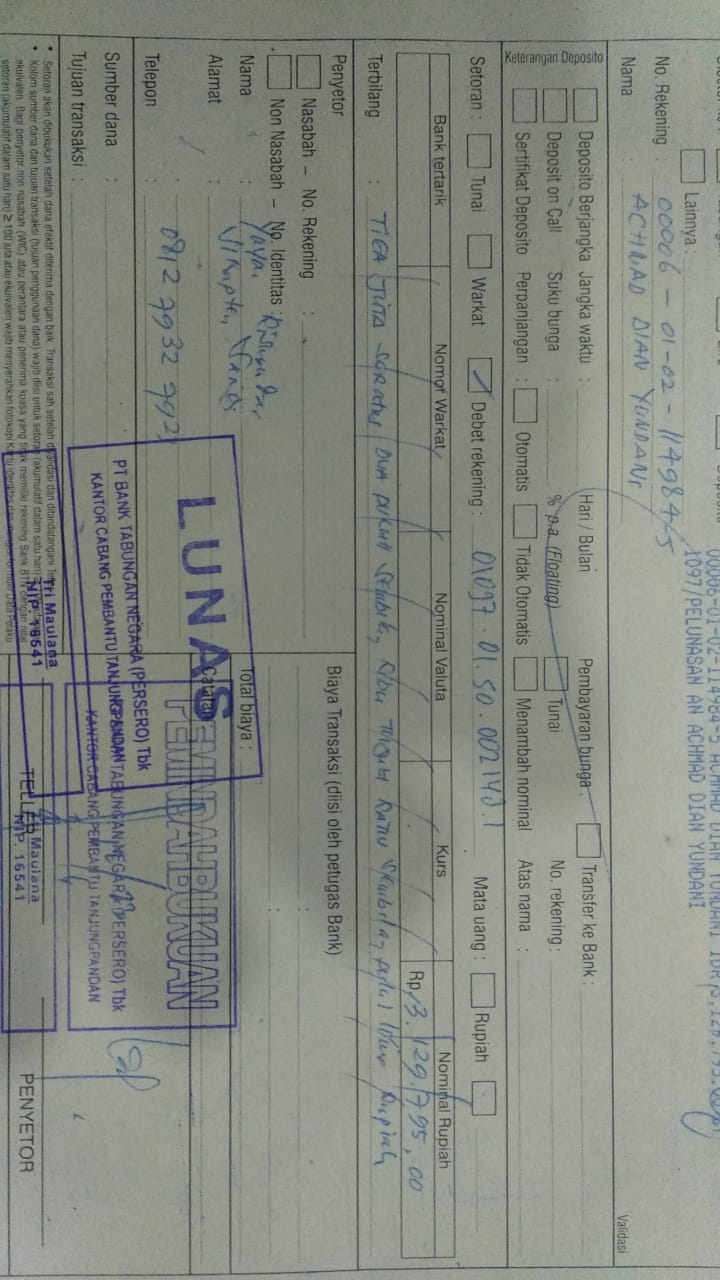 00006-01-02-114984-5 ACHMAD DIAN YUNDANI IDR
1097/PELUNASAN AN ACHMAD DIAN YUNDANI
Validasi
Lainnya :
No. Rekening : 00006 - 01-02 - 114984-5
Nama : ACHMAD DIAN YUNDANI
Keterangan Deposito
Deposito Berjangka Jangka waktu : Hari / Bulan Pembayaran bunga : Transfer ke Bank :
Deposit on Call Suku bunga : % p.a. (Floating) Tunai No. rekening :
Sertifikat Deposito Perpanjangan : Otomatis Tidak Otomatis Menambah nominal Atas nama :
Setoran : Tunai Warkat Debet rekening : 01097.01.50.002140.1 Mata uang : Rupiah
Bank tertarik Nomor Warkat Nominal Valuta Kurs Nominal Rupiah
Rp 3.129.795,00
Terbilang : TIGA JUTA SERATUS DUA PULUH SEMBILAN RIBU TUJUH RATUS SEMBILAN PULUH LIMA RUPIAH
Penyetor Biaya Transaksi (diisi oleh petugas Bank)
Nasabah – No. Rekening :
Non Nasabah – No. Identitas :
Nama :
Alamat :
Telepon :
Total biaya :
Catatan
LUNAS
PT BANK TABUNGAN NEGARA (PERSERO) Tbk
KANTOR CABANG PEMBANTU TANJUNGPANDAN
PEMINDAHBUKUAN
TABUNGAN NEGARA (PERSERO) Tbk
KANTOR CABANG PEMBANTU TANJUNGPANDAN
Sumber dana :
Tujuan transaksi :
Tri Maulana
NIP. 16541
TELLER
Maulana
NIP. 16541
PENYETOR
• Setoran akan dibukukan setelah dana efektif diterima dengan baik. Transaksi sah setelah divalidasi dan ditandatangani
• Kolom sumber dana dan tujuan transaksi (tujuan penggunaan dana) wajib diisi untuk setoran (akumulatif dalam satu hari)
ekuivalen. Bagi penyetor non nasabah (WIC) atau perantara atau penerima kuasa yang tidak memiliki rekening Bank BTN dengan nilai
setoran (akumulatif dalam satu hari) ≥ 100 juta atau ekuivalen wajib menyerahkan fotokopi